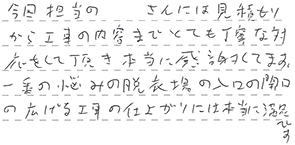 今回担当の　　　さんには見積もり
から工事の内容までとても丁寧な対
応をして頂き本当に感謝してます。
一番の悩みの脱衣場の入口の開口
の広げる工事の仕上がりには本当に満足
です